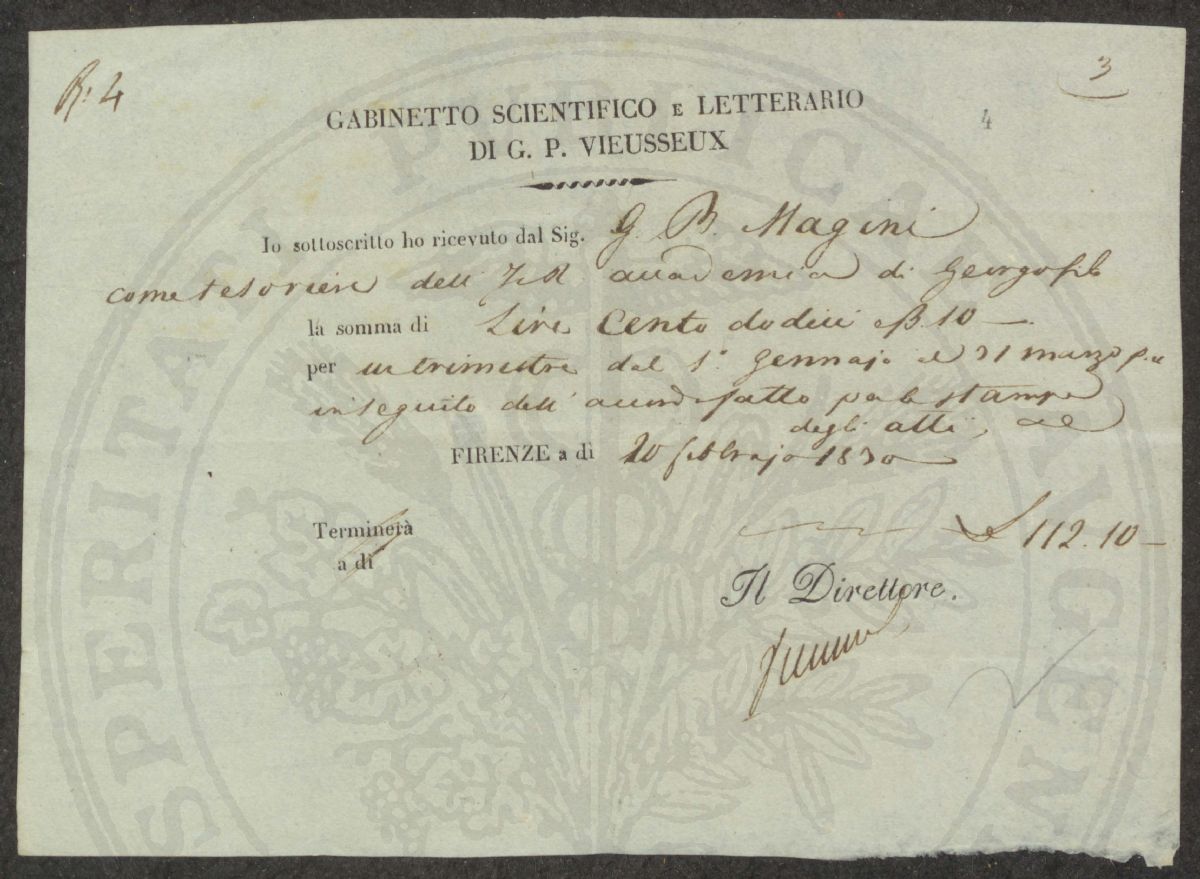 R: 4
3
4
GABINETTO SCIENTIFICO E LETTERARIO
DI G. P. VIEUSSEUX
Io sottoscritto ho ricevuto dal Sig. G. B. Magini
come tesoriere dell' I e R accademia di Georgofili
la somma di Lire Cento dodici e ß 10 —
per un trimestre dal 1° Gennajo al 31 marzo
in seguito dell' accordo fatto per le stampe
degli atti,
FIRENZE a dì 20 febbrajo 1830
Terminerà
a dì
£ 112.10 —
Il Direttore.
PROSPERITATI PUBLICAE AUGENDAE